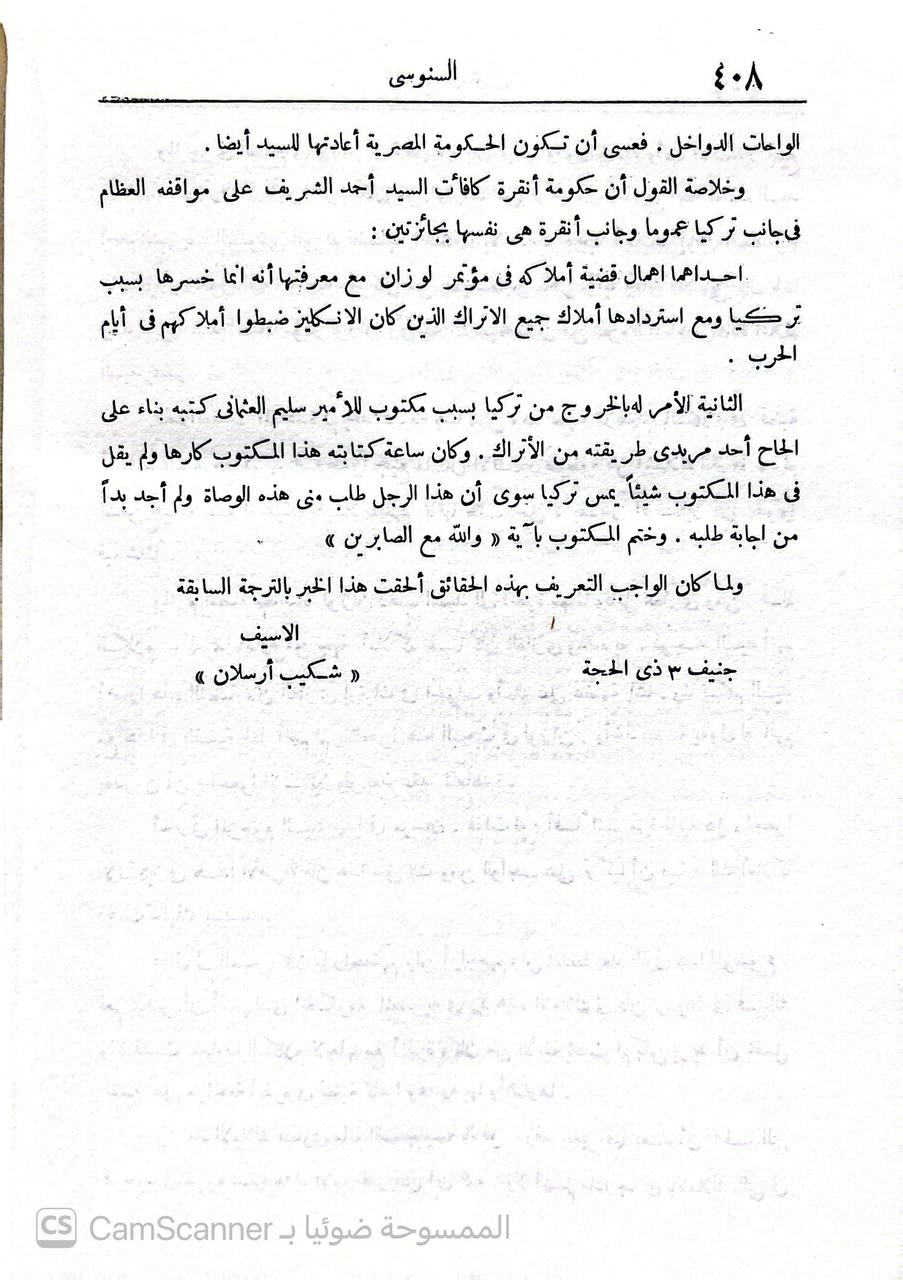 ٤٠٨
السنوسى
الواحات الدواخل . فعسى أن تكون الحكومة المصرية أعادتها للسيد أيضا .
وخلاصة القول أن حكومة أنقرة كافأت السيد أحمد الشريف على مواقفه العظام
فى جانب تركيا عموما وجانب أنقرة هى نفسها بجائزتين :
احداهما اهمال قضية أملاكه فى مؤتمر لوزان مع معرفتها أنه انما خسرها بسبب
تركيا ومع استردادها أملاك جميع الاتراك الذين كان الانكليز ضبطوا أملاكهم فى أيام
الحرب .
الثانية الأمر له بالخروج من تركيا بسبب مكتوب للأمير سليم العثمانى كتبه بناء على
الحاح أحد مريدى طريقته من الأتراك . وكان ساعة كتابته هذا المكتوب كارها ولم يقل
فى هذا المكتوب شيئاً يمس تركيا سوى أن هذا الرجل طلب منى هذه الوصاة ولم أجد بداً
من اجابة طلبه . وختم المكتوب بآية « والله مع الصابرين »
ولما كان الواجب التعريف بهذه الحقائق ألحقت هذا الخبر بالترجمة السابقة
الاسيف
جنيف ٣ ذى الحجة « شكيب أرسلان »
CS CamScanner الممسوحة ضوئيا بـ